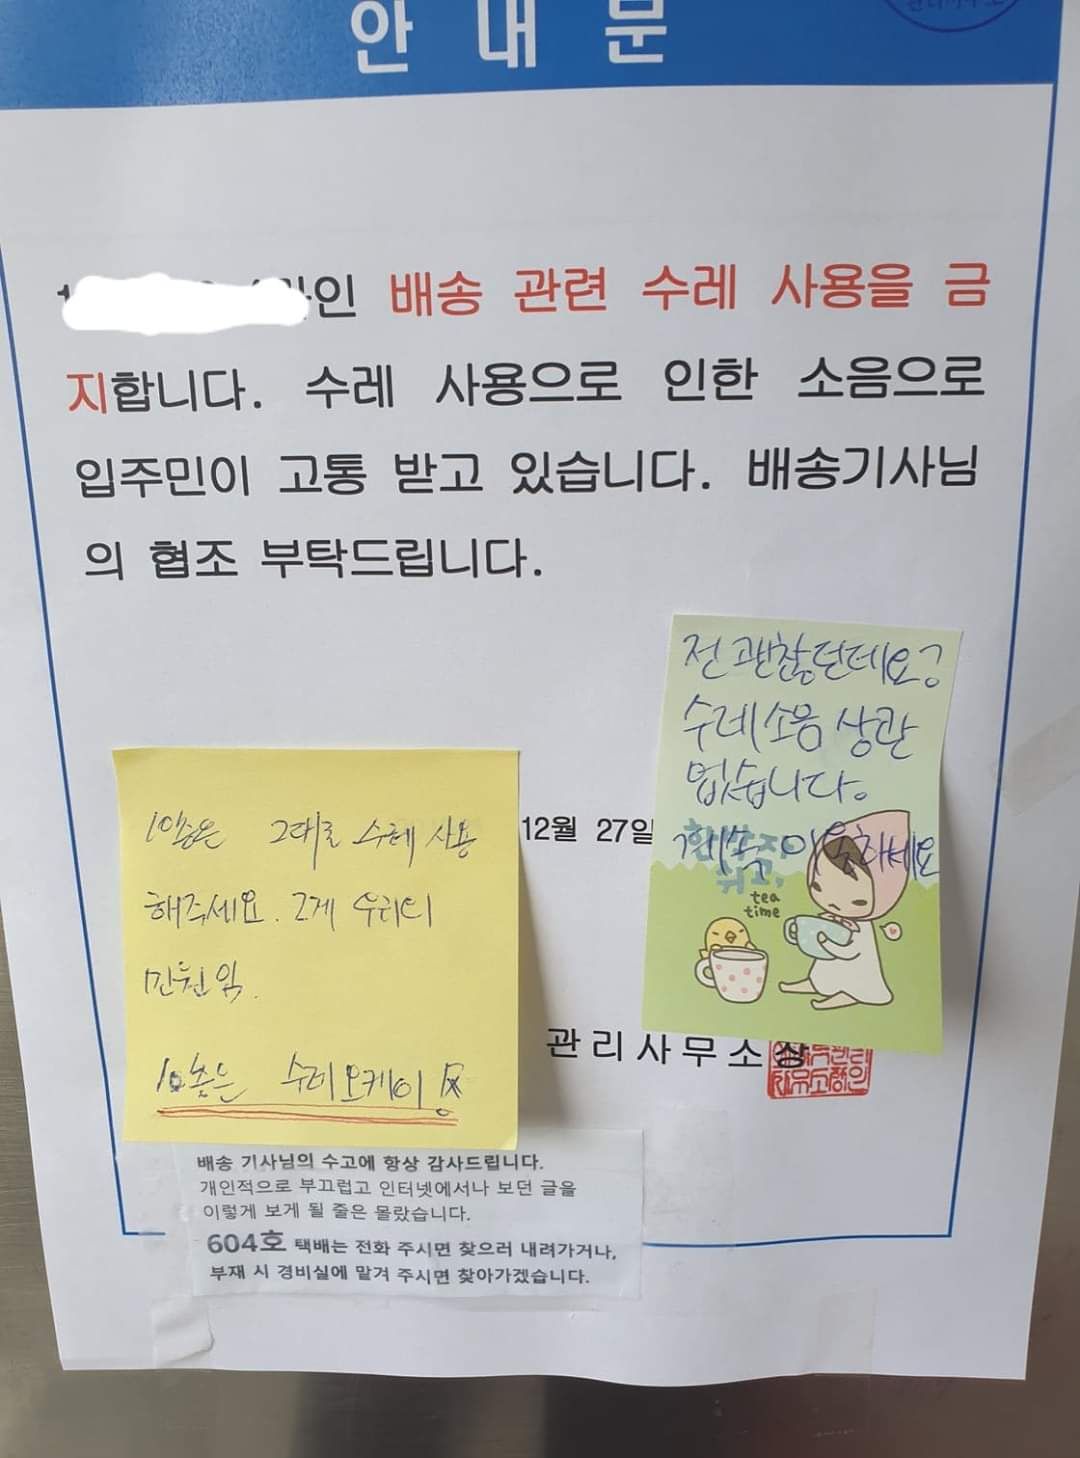 안내문
관리사무소
인 배송 관련 수레 사용을 금
지합니다. 수레 사용으로 인한 소음으로
입주민이 고통 받고 있습니다. 배송기사님
의 협조 부탁드립니다.
전 괜찮던데요?
수레소음 상관
없습니다.
계속 이용하세요
tea
time
12월 27일
10층은 그대로 수레 사용
해주세요. 그게 우리의
민원임.
10층은 수레오케이
관리사무소장
배송 기사님의 수고에 항상 감사드립니다.
개인적으로 부끄럽고 인터넷에서나 보던 글을
이렇게 보게 될 줄은 몰랐습니다.
604호 택배는 전화 주시면 찾으러 내려가거나,
부재 시 경비실에 맡겨 주시면 찾아가겠습니다.